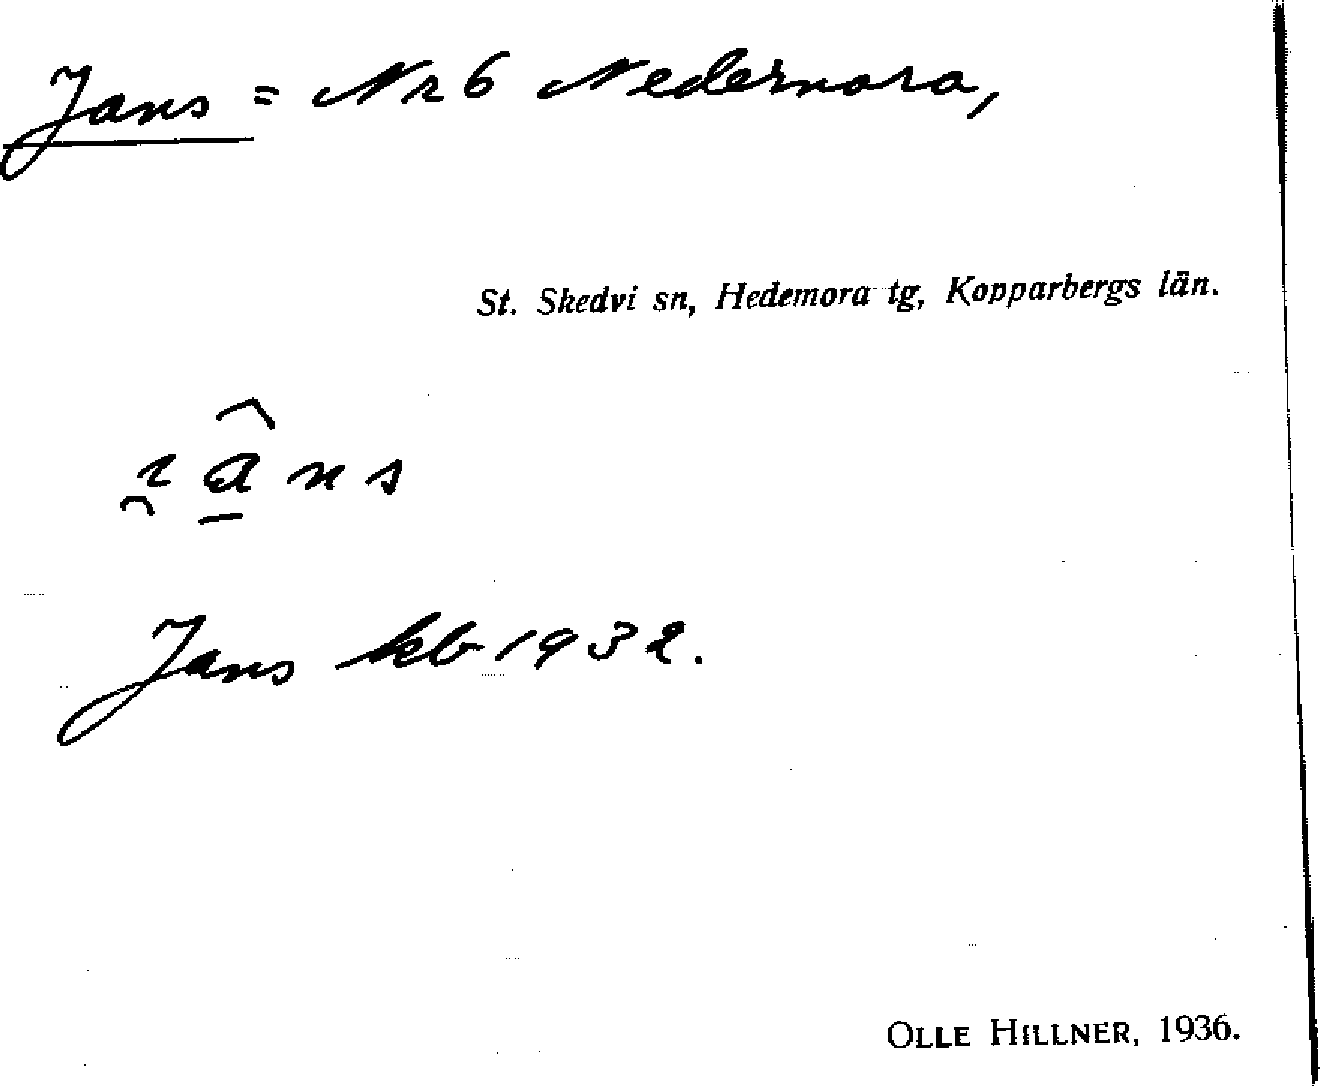 Jans = Nr 6 Nedernora,
St. Skedvi sn, Hedemora tg, Kopparbergs län.
ı̯â̱ns
Jans kb 1932.
OLLE HILLNER, 1936.